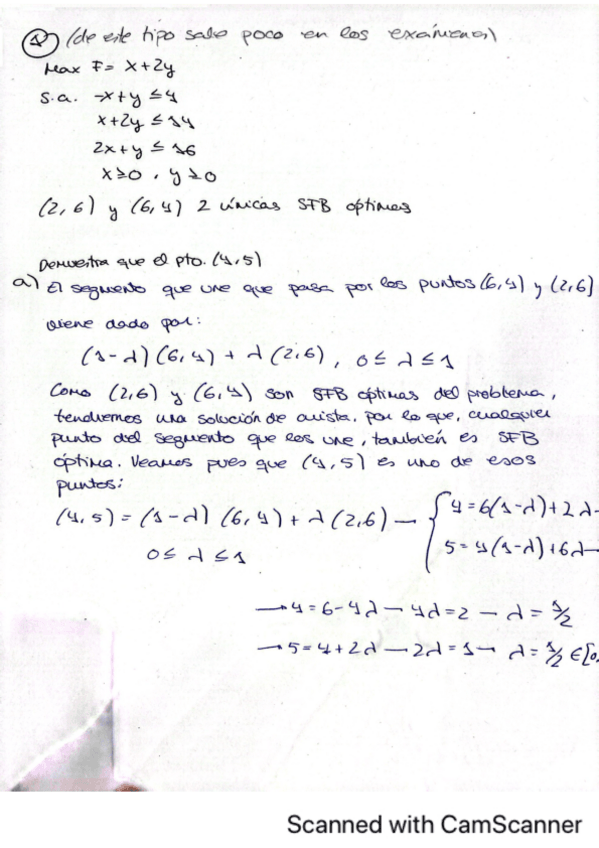 1) (de este tipo sale poco en los exámenes)
Max F = x+2y
s.a. -x+y ≤ 4
x+2y ≤ 14
2x+y ≤ 16
x≥0, y≥0
(2,6) y (6,4) 2 únicas SFB óptimas
Demuestra que el pto. (4,5)
a) El segmento que une que pasa por los puntos (6,4) y (2,6)
viene dado por:
(1-λ)(6,4) + λ(2,6), 0≤ λ ≤1
Como (2,6) y (6,4) son SFB óptimas del problema,
tendremos una solución de arista, por lo que, cualquier
punto del segmento que los une, también es SFB
óptima. Veamos pues que (4,5) es uno de esos
puntos:
(4,5) = (1-λ)(6,4) + λ(2,6) → { 4 = 6(1-λ)+2λ→
0≤ λ ≤1 5 = 4(1-λ)+6λ→
→ 4=6-4λ → 4λ=2 → λ = 1/2
→ 5=4+2λ → 2λ=1 → λ = 1/2 ∈ [0,
Scanned with CamScanner